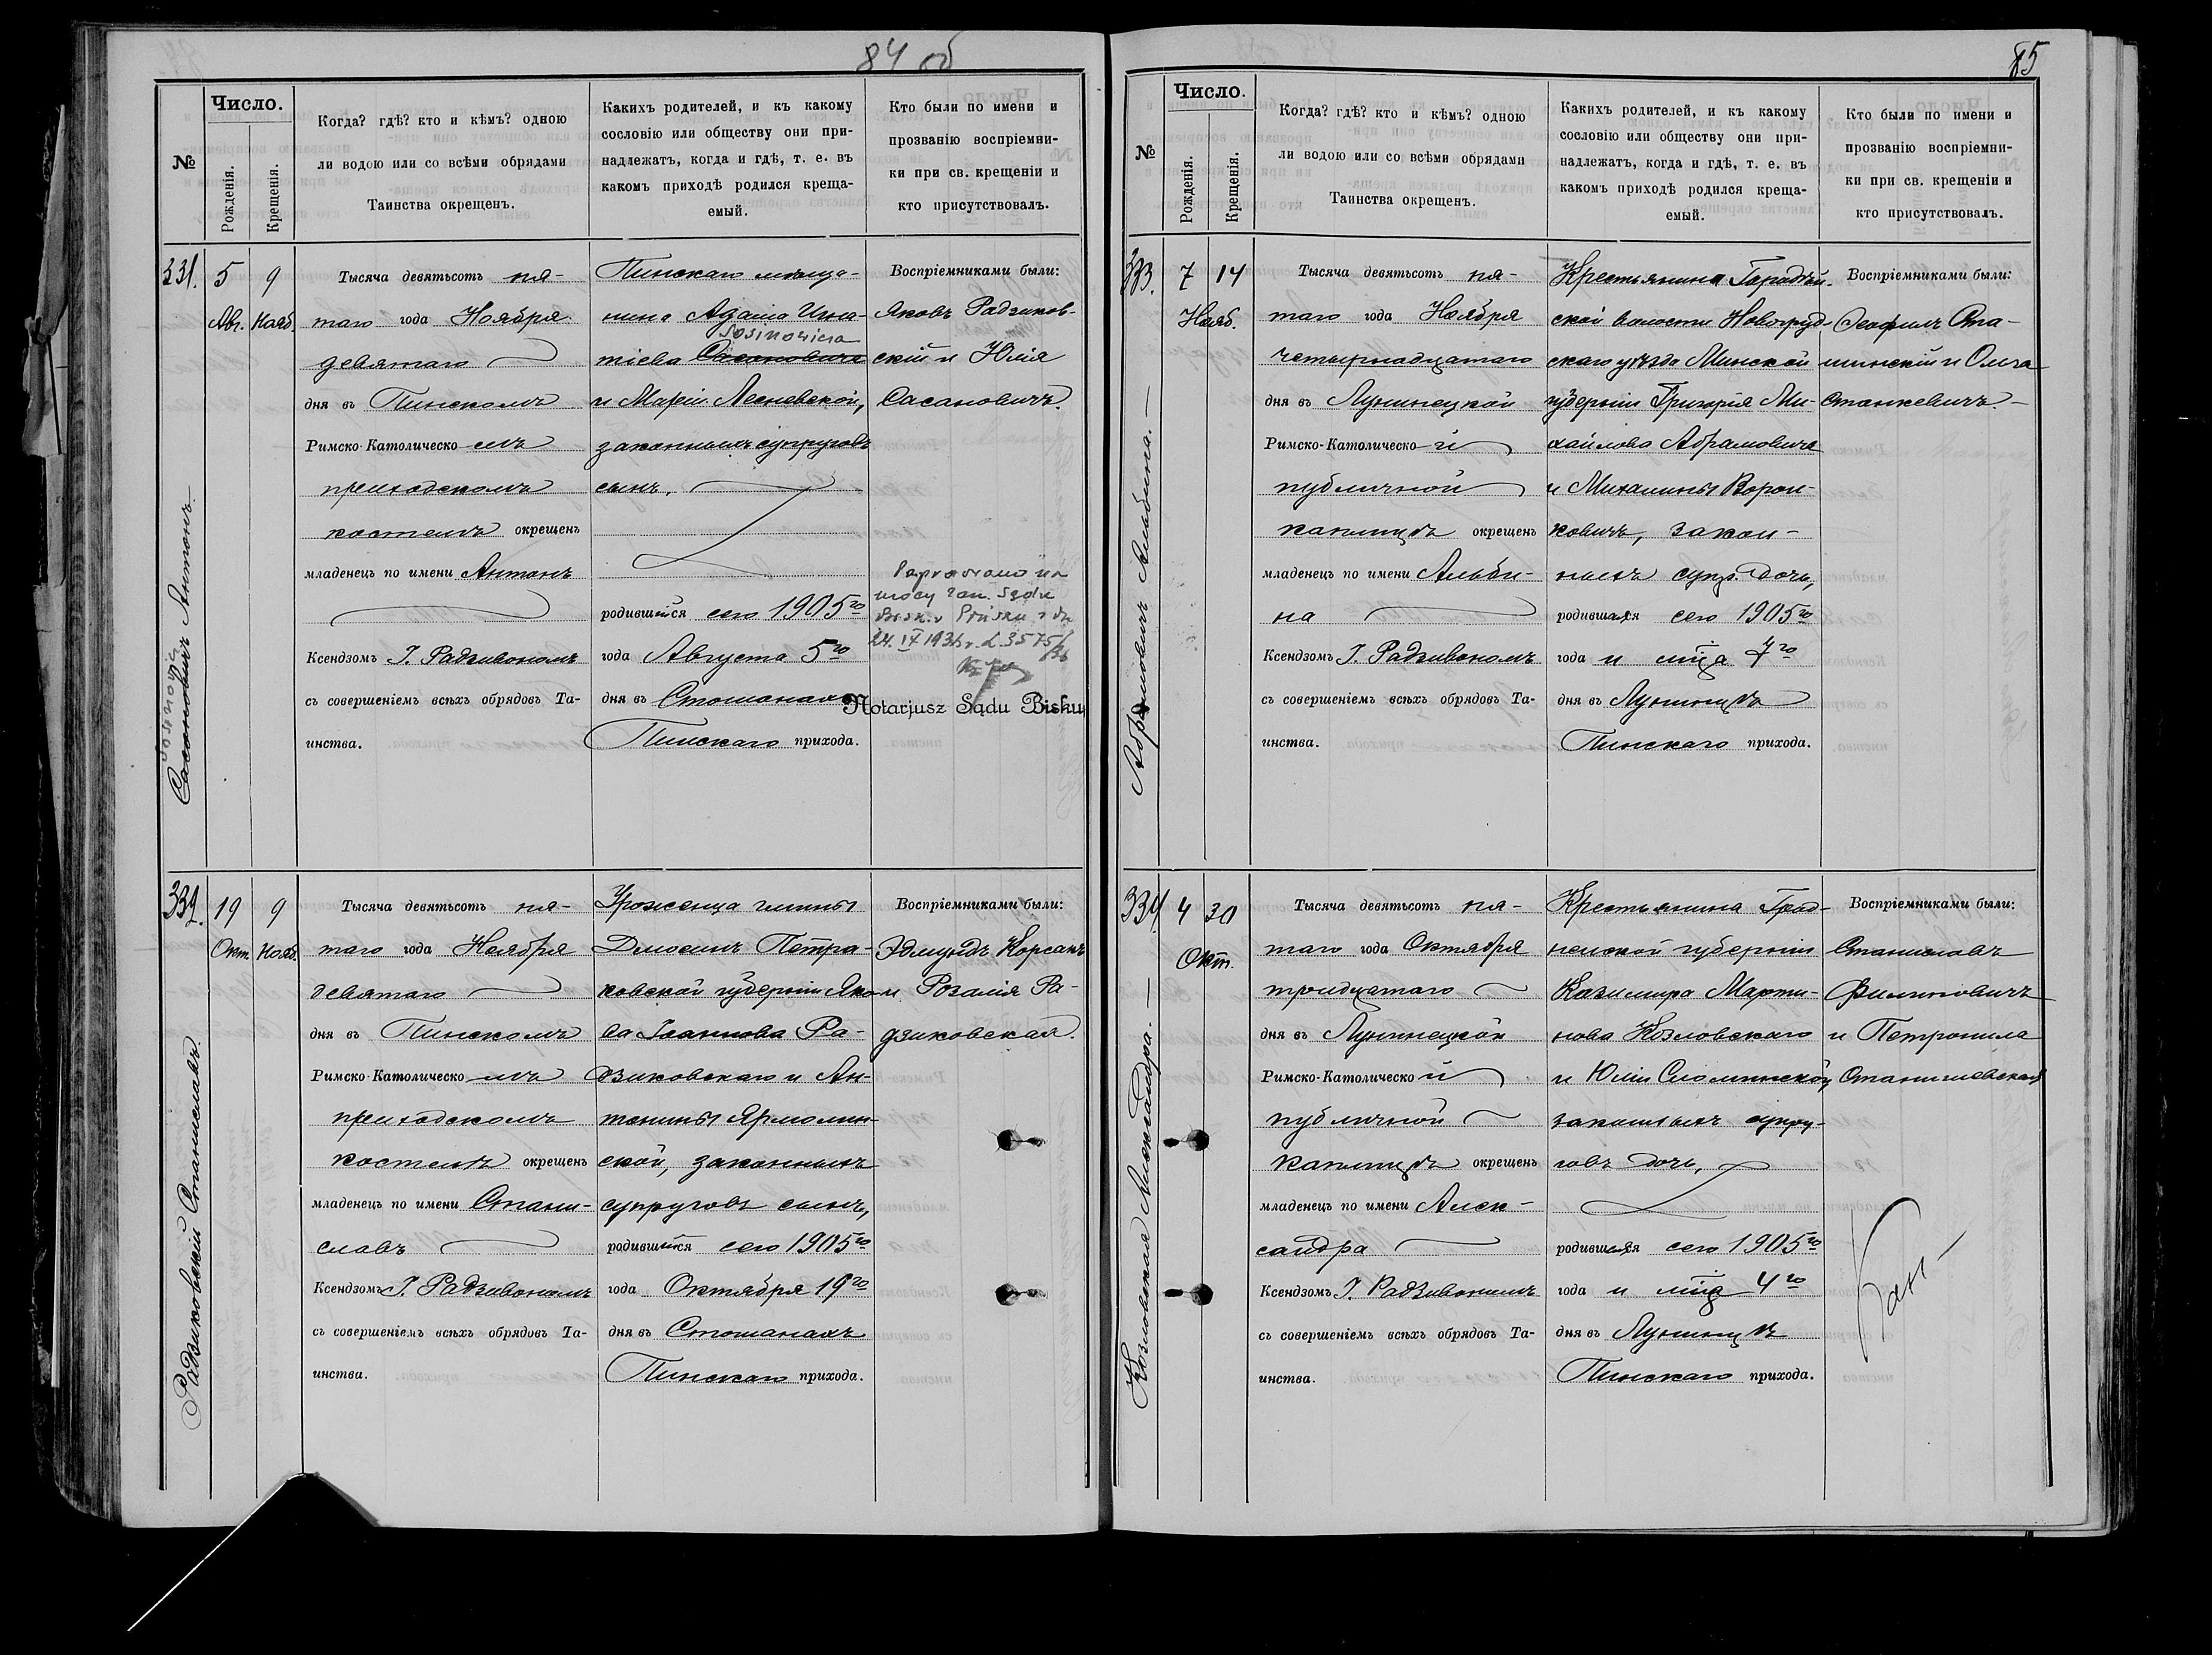 84 об
№
Число.
Рожденія.
Крещенія.
Когда? гдѣ? кто и кѣмъ? одною
ли водою или со всѣми обрядами
Таинства окрещенъ.
Какихъ родителей, и къ какому
сословію или обществу они при-
надлежатъ, когда и гдѣ, т. е. въ
какомъ приходѣ родился креща-
емый.
Кто были по имени и
прозванію воспріемни-
ки при св. крещеніи и
кто присутствовалъ.
331.
Сасановичъ Антонъ.
Sosinowicz
5
Авг.
9
Нояб.
Тысяча девятьсотъ пя-
таго года Ноября
девятаго
дня въ Пинскомъ
Римско-Католическо-мъ
приходскомъ
костелѣ окрещенъ
младенецъ по имени Антонъ
Ксендзомъ І. Радзивономъ
съ совершеніемъ всѣхъ обрядовъ Та-
инства.
Пинскаго мѣща-
нина Адама Игна-
Sosinowicza
тіева Сасановича
и Маріи Лесневской,
законныхъ супруговъ
сынъ,
родившійся сего 1905го
года Августа 5го
дня въ Стошанахъ
Пинскаго прихода.
Воспріемниками были:
Яковъ Радзиков-
скій и Юлія
Сасановичъ.
Poprawiono na
mocy zam. Sądu
Bisk. w Pińsku z dn.
24.IX 1936 r. L 3575/36
Notarjusz Sądu Bisku
332.
Радзиковскій Станиславъ.
19
Окт.
9
Нояб.
Тысяча девятьсотъ пя-
таго года Ноября
девятаго
дня въ Пинскомъ
Римско-Католическо-мъ
приходскомъ
костелѣ окрещенъ
младенецъ по имени Стани-
славъ
Ксендзомъ І. Радзивономъ
съ совершеніемъ всѣхъ обрядовъ Та-
инства.
Уроженца гмины
Длосинъ Петра-
ковской губерніи Яко-
ва Іоаннова Ра-
дзиковскаго и Ан-
тонины Ярмолин-
ской, законныхъ
супруговъ сынъ,
родившійся сего 1905го
года Октября 19го
дня въ Стошанахъ
Пинскаго прихода.
Воспріемниками были:
Эдмундъ Корсакъ
и Розалія Ра-
дзиковская.
85
№
Число.
Рожденія.
Крещенія.
Когда? гдѣ? кто и кѣмъ? одною
ли водою или со всѣми обрядами
Таинства окрещенъ.
Какихъ родителей, и къ какому
сословію или обществу они при-
надлежатъ, когда и гдѣ, т. е. въ
какомъ приходѣ родился креща-
емый.
Кто были по имени и
прозванію воспріемни-
ки при св. крещеніи и
кто присутствовалъ.
333.
Абрамовичъ Альбина.
7 14
Нояб.
Тысяча девятьсотъ пя-
таго года Ноября
четырнадцатаго
дня въ Лунинецкой
Римско-Католическо-й
публичной
каплицѣ окрещенъ
младенецъ по имени Альби-
на
Ксендзомъ І. Радзивономъ
съ совершеніемъ всѣхъ обрядовъ Та-
инства.
Крестьянина Городей-
ской волости Новогруд-
скаго уѣзда Минской
губерніи Григорія Ми-
хайлова Абрамовича
и Михалины Ворон-
ковичъ, закон-
ныхъ супр. дочь,
родившаяся сего 1905го
года и мѣца 7го
дня въ Лунинцѣ
Пинскаго прихода.
Воспріемниками были:
Ѳеофилъ Ста-
шинскій и Ольга
Станкевичъ.
334.
Козловская Александра.
4 30
Окт.
Тысяча девятьсотъ пя-
таго года Октября
тридцатаго
дня въ Лунинецкой
Римско-Католическо-й
публичной
каплицѣ окрещенъ
младенецъ по имени Алек-
сандра
Ксендзомъ І. Радзивономъ
съ совершеніемъ всѣхъ обрядовъ Та-
инства.
Крестьянина Грод-
ненской губерніи
Казимира Марти-
нова Козловскаго
и Юліи Сломинской,
законныхъ супру-
говъ дочь,
родившаяся сего 1905го
года и мѣца 4го
дня въ Лунинцѣ
Пинскаго прихода.
Воспріемниками были:
Станиславъ
Филиповичъ
и Петронила
Станишевская